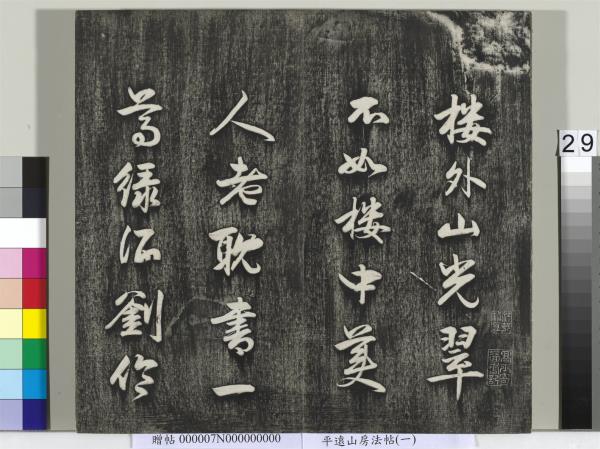 楼外山光翠
不如楼中美
人老耽書一
緑 劉伶
29
贈帖 000007N000000000 平遠山房法帖(一)